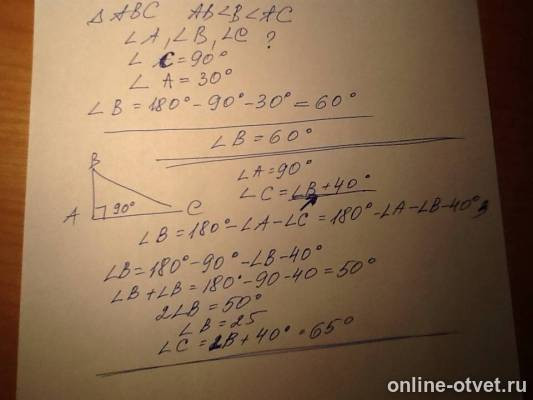 △ABC AB<B<AC
∠A, ∠B, ∠C ?
∠C=90°
∠A=30°
∠B=180°-90°-30°=60°
∠B=60°
B
A 90° C
∠A=90°
∠C=∠B+40°
∠B=180°-∠A-∠C=180°-∠A-∠B-40°
∠B=180°-90°-∠B-40°
∠B+∠B=180°-90-40=50°
2∠B=50°
∠B=25
∠C=∠B+40°=65°
online-otvet.ru